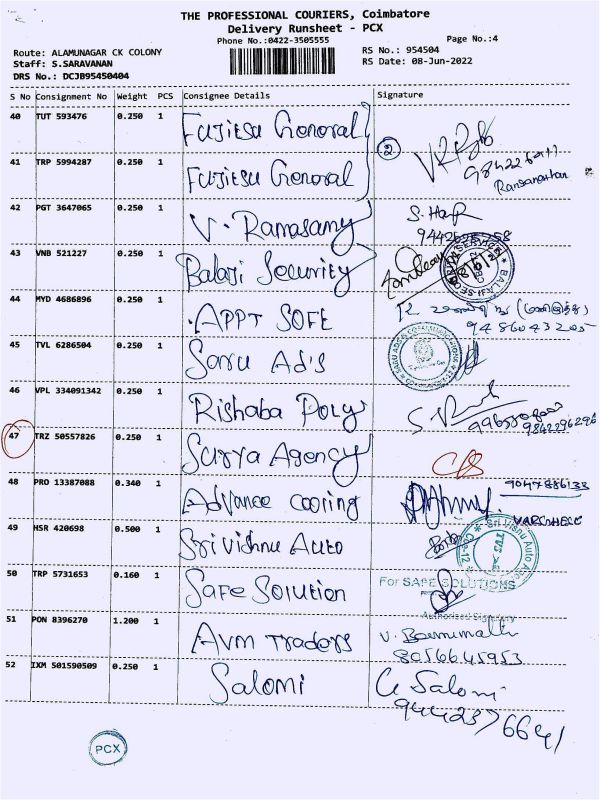 THE PROFESSIONAL COURIERS, Coimbatore
Delivery Runsheet - PCX
Phone No.:0422-3505555
Page No.:4
Route: ALAMUNAGAR CK COLONY
RS No.: 954504
Staff: S.SARAVANAN
RS Date: 08-Jun-2022
DRS No.: DCJB95450404
S No Consignment No Weight PCS Consignee Details Signature
40 TUT 593476 0.250 1 Fujitsu General
2
41 TRP 5994287 0.250 1 Fujitsu General
42 PGT 3647065 0.250 1 V. Ramasamy
43 VNB 521227 0.250 1 Balaji Security
44 MYD 4686896 0.250 1 APPT SOFE
9486043205
45 TVL 6286504 0.250 1 Saru Ad's
46 VPL 334091342 0.250 1 Rishaba Poly
9842296296
47 TRZ 50557826 0.250 1 Surya Agency
48 PRO 13387088 0.340 1 Advance cooring
9047886133
VARGHESE
49 HSR 420698 0.500 1 Sri Vishnu Auto
50 TRP 5731653 0.160 1 Safe Solution
For SAFE SOLUTIONS
Authorised Signatory
51 PON 8396270 1.200 1 Avm Traders
8056645953
52 IXM 501590509 0.250 1 Salomi
Salomi
9442376641
PCX